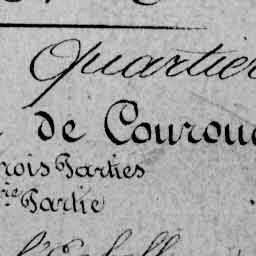 Quartier
de Courou
rois Parties
re Partie